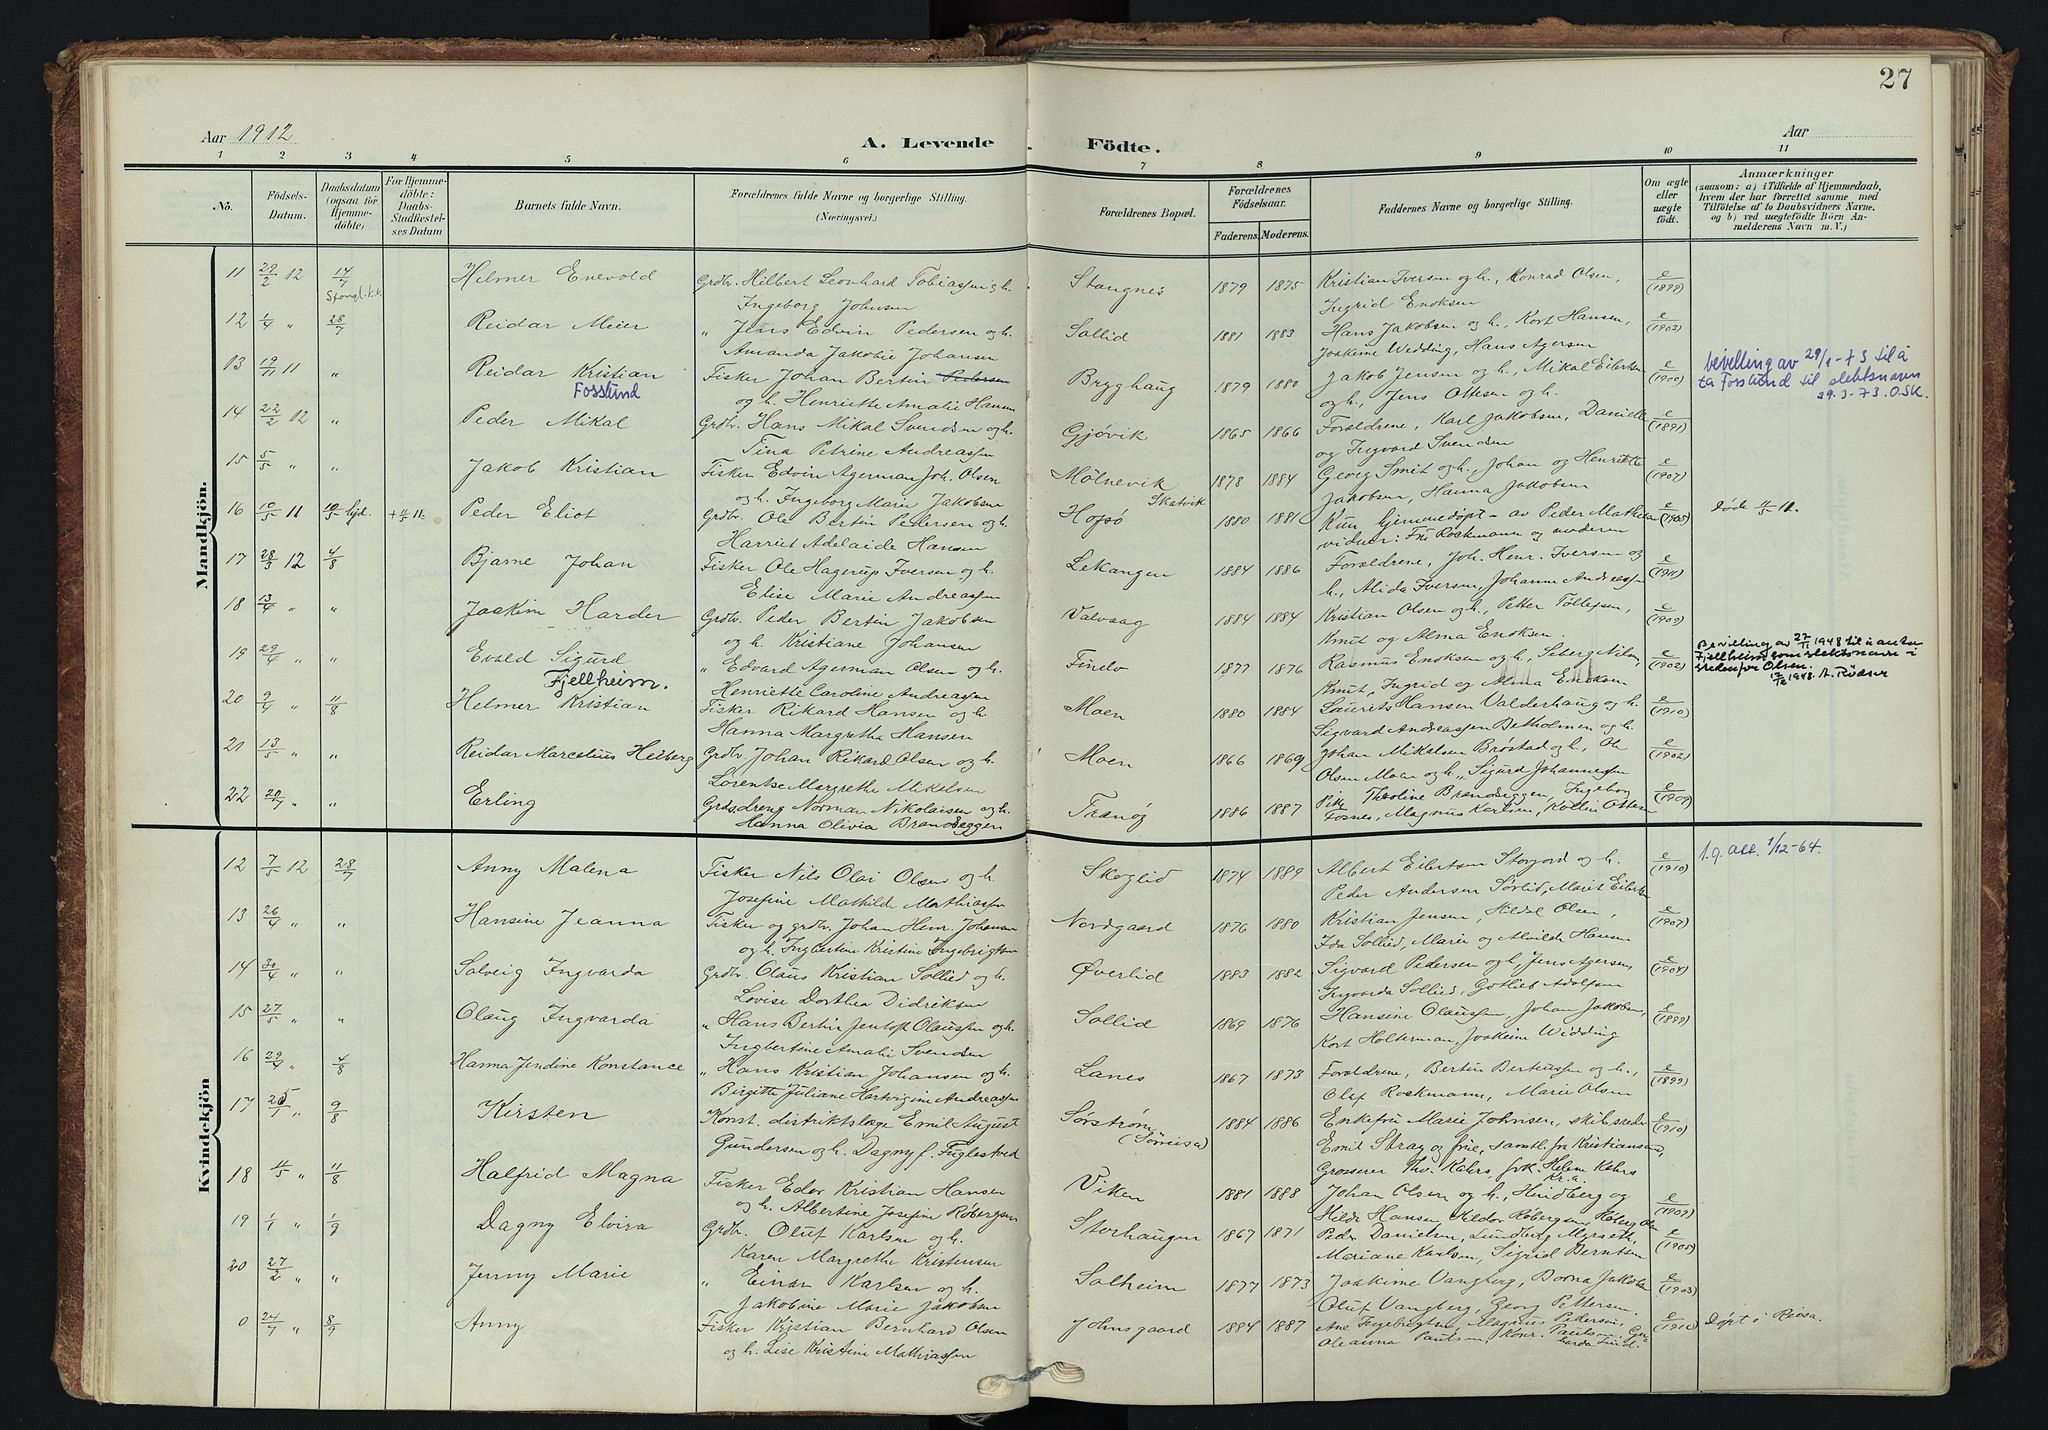 27
Aar 1912
A. Levende
Födte.
Aar
1 2 3 4 5 6 7 8 9 10 11
No.
Födsels-
Datum.
Daabsdatum
(ogsaa for
Hjemme-
döbte)
For Hjemme-
döbte:
Daabs-
Stadfæstel-
ses Datum
Barnets fulde Navn.
Forældrenes fulde Navne og borgerlige Stilling.
(Næringsvei.)
Forældrenes Bopæl.
Forældrenes
Födselsaar.
Faderens. Moderens.
Faddernes Navne og borgerlige Stilling.
Om ægte
eller
uægte
födt.
Anmærkninger
(saasom: a) i Tilfælde af Hjemmedaab,
hvem der har forrettet samme med
Tilföielse af to Daabsvidners Navne,
og b) ved uægtefödte Börn An-
melderens Navn m. V.)
Mandkjön.
11 29/2 12 14/7 Helmer Enevold Grdbr. Hilbert Leonhard Tobiassen og h. Stangnes 1879 1875 Kristian Iversen og h., Konrad Olsen, e/(1899)
Ingeborg Johnsen Ingrid Enoksen
12 1/4 " 28/7 Reidar Meier " Jens Edvin Pedersen og h. Sollid 1881 1883 Hans Jakobsen og h., Kort Hansen, e/(1903)
Amanda Jakobie Johansen Joakime Wedding, Hans Agersen
13 19/11 11 " Reidar Kristian Fisker Johan Bertin Pedersen Brygghaug 1879 1880 Jakob Jensen og h., Mikal Eilertsen e/(1900) bevilling av 29/1-73 til å
Fosslund og h. Henriette Amalie Hansen og h., Jens Ottesen og h. ta Fosslund til slektsnavn
29.3-73. O.SK.
14 22/2 12 " Peder Mikal Grdbr. Hans Mikal Svendsen og h. Gjøvik 1865 1866 Forældrene, Karl Jakobsen, Danielle e/(1891)
Tina Petrine Andreassen og Ingvard Svendsen
15 5/5 " " Jakob Kristian Fisker Edvin Agerman Joh. Olsen Mølnevik 1878 1884 Georg Smit og h., Johan og Henriette e/(1907)
og h. Ingeborg Marie Jakobsen Skatvik Jakobsen, Hanna Jakobsen
16 10/5 11 10/5 hjd. + 11/5 11. Peder Eliot Grdbr. Ole Bertin Pedersen og h. Hofsø 1880 1881 Kun hjemmedøpt - av Peder Mathisen e/(1905) Døde 11/5 11.
Harriet Adelaide Hansen vidner: Fru Rockmann og moderen
17 28/3 12 4/8 Bjarne Johan Fisker Ole Hagerup Iversen og h. Lekangen 1884 1886 Forældrene, Joh. Henr. Iversen og e/(1911)
Elise Marie Andreassen h., Alida Iversen, Johanne Andreassen
18 13/4 " " Joakim Harder Grdbr. Peder Bertin Jakobsen Valvaag 1884 1884 Kristian Olsen og h., Petter Tøllefsen, e/(1909)
og h. Kristiane Johansen Knut og Alma Enoksen.
19 29/4 " " Evald Sigurd " Edvard Agerman Olsen og h. Finlo 1877 1876 Rasmus Enoksen og h., e/(1902) Bevilling av 27/11 1948 til å anta
Fjellheim. Henriette Caroline Andreassen Knut, Ingrid og Alma Enoksen Fjellheim som slektsnavn i
stedenfor Olsen.
17/12 1948. A. Rödser
20 9/4 " 11/8 Helmer Kristian Fisker Rikard Hansen og h. Moen 1880 1884 Laurits Hansen Valderhaug og h. e/(1910)
Hanna Margrethe Hansen Sigvard Andreassen Betholmen og h.
21 13/5 " " Reidar Marcelius Hilberg Grdbr. Johan Rikard Olsen og h. Moen 1866 1869 Johan Mikalsen Brøstad og h., Ole e/(1902)
Lorentse Margrethe Mikalsen Olsen Moen og h., Sigurd Johannessen
22 20/7 " " Erling Grdsdreng Norman Nikolaisen og h. Tranøy 1886 1887 Pike Theoline Brandseggen, Ingeborg e/(1909)
Hanna Olivia Brandseggen Fosnes, Magnus Karlsen, Kollin Ottesen
Kvindekjön
12 7/5 12 28/7 Anny Malena Fisker Nils Olai Olsen og h. Skoglid 1874 1889 Albert Eilertsen Storjord og h. e/(1910) 1.g. att. 1/12-64.
Josefine Mathilde Mathiassen Peder Andersen Sørlid, Marit Eilertsen
13 26/4 " " Hansine Jeanna Fisker og grdbr. Johan Henr. Johansen Nordgaard 1876 1880 Kristian Jensen, Hilda Olsen, e/(1907)
og h. Ingbertine Kristine Ingebrigtsen Ida Sollied, Marie og Alvilde Hansen
14 30/4 " " Solveig Ingvarda Grdbr. Olaus Kristian Sollied og h. Øverlid 1883 1882 Sigvard Pedersen og h., Jens Agersen, e/(1904)
Lovise Dorthea Didriksen Ingvarda Sollied, Gotlieb Adolfsen
15 27/5 " " Olaug Ingvarda " Hans Bertin Jentoft Olaussen og h. Sollid 1869 1876 Hansine Olaussen, Johan Jakobsen, e/(1899)
Ingbertine Amalie Svendsen Kort Holterman, Joakime Widding
16 29/4 4/8 Hanna Jendine Konstance " Hans Kristian Johansen og h. Lanes 1867 1873 Forældrene, Bertin Berteussen og h., e/(1899)
Birgitte Juliane Hartvigine Andreassen Olef Rockmann, Marie Olsen
17 " 9/8 Kirsten Konst. distriktslæge Emil August Sørstrøm 1884 1886 Enkefru Marie Johnsen, skibsreder e/(1910)
Gundersen og h. Dagny f. Fuglestved (Sørreisa) Emil Stray og frue, samtl. fr. Kristiansand,
Grosserer Thv. Kahrs frk. Helene Kahrs
Kr.a.
18 11/5 " 11/8 Halfrid Magna Fisker Edor Kristian Hansen Viken 1881 1888 Johan Olsen og h., Hindberg og e/(1909)
og h. Albertine Josefine Røbergsen Hilda Hansen, Heldor Røbergsen
19 1/1 " 1/9 Dagny Elvira Grdbr. Oluf Karlsen og h. Storhaugen 1867 1871 Peder Danielsen, Lundberg Myrseth, e/(1905)
Karen Margrethe Kristensen Mariane Karlsen, Sigrid Berntsen
20 27/2 " " Jenny Marie " Einar Karlsen og h. Solheim 1877 1873 Joakime Vangberg, Borna Jakobsen e/(1903)
Jakobine Marie Jakobsen Oluf Vangberg, Georg Pettersen.
0 24/7 " 8/9 Anny Fisker Kristian Bernhard Olsen Johnsgaard 1884 1887 Ane Ingebrigtsen, Magnus Pedersen, e/(1910) Døpt i Reisa.
og h. Lise Kristine Mathiassen Oleanna Paulsen, Konr. Paulsen,